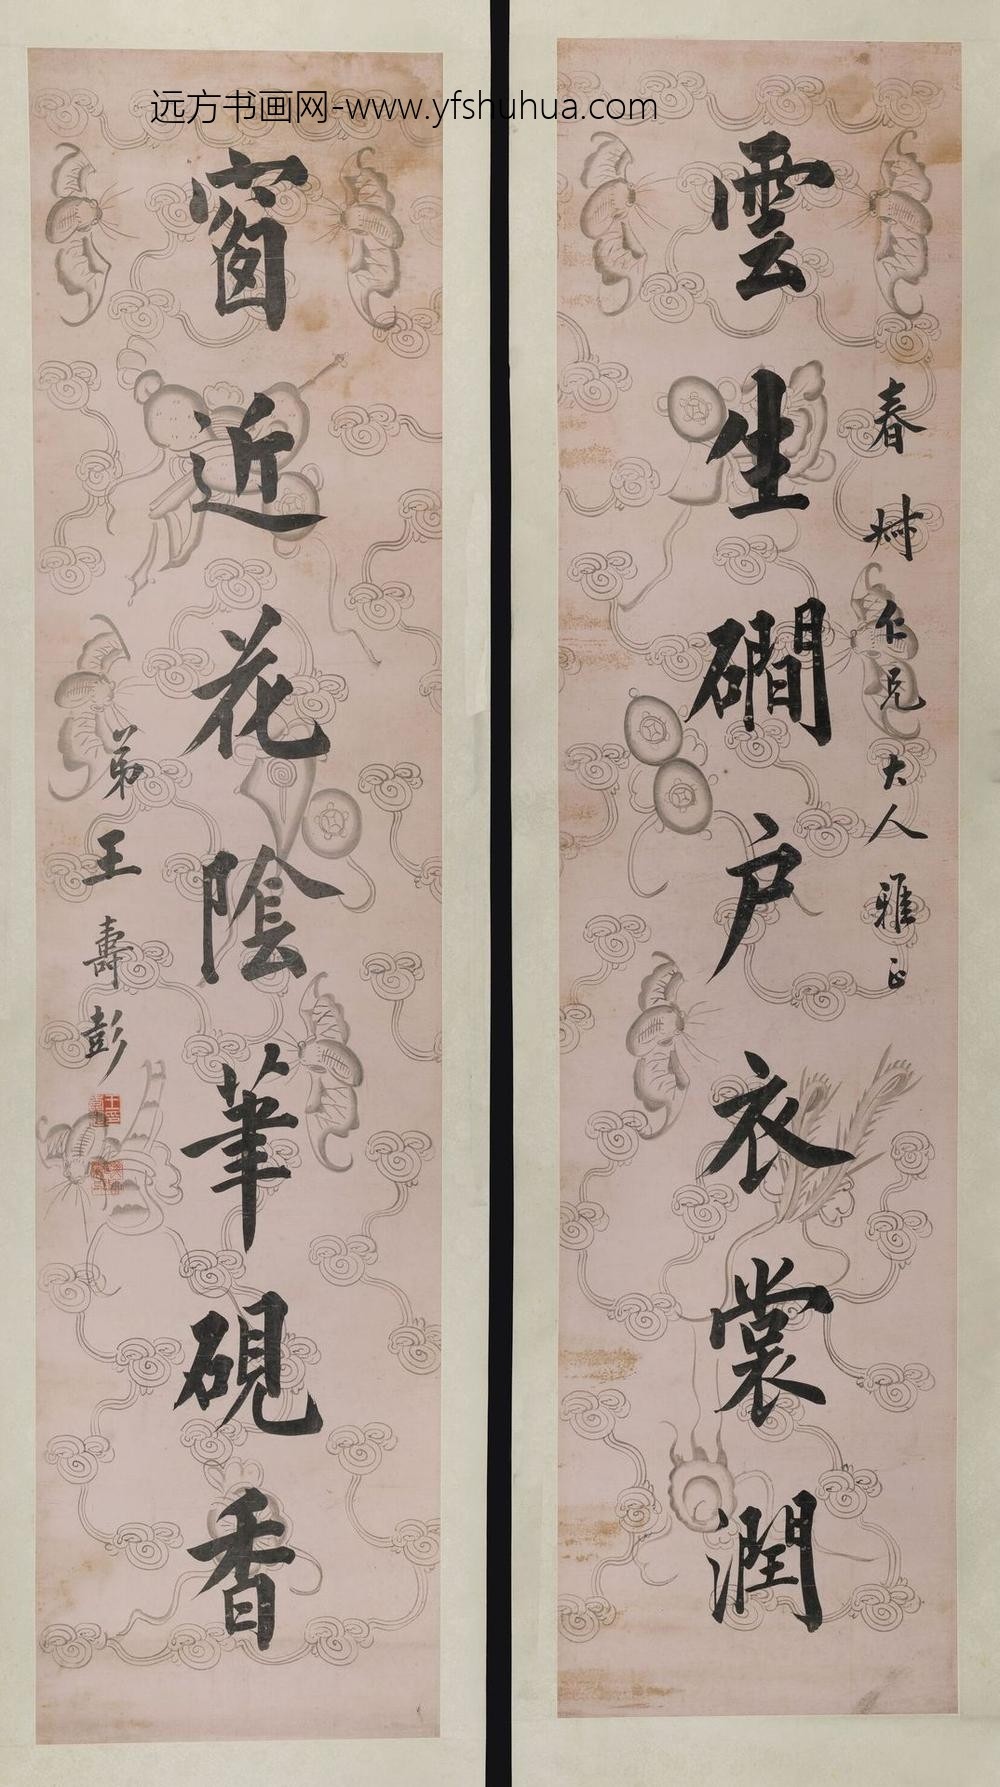 远方书画网-www.yfshuhua.com
雲生磵户衣裳潤
春 仁兄大人雅正
窗近花陰筆硯香
弟王壽彭